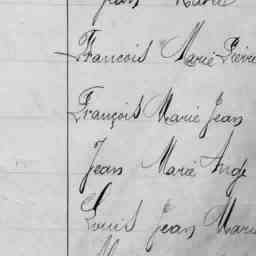 Jean Marie
Francois Marie Pierre
François Marie Jean
Jean Marie Ange
Louis Jean Marie